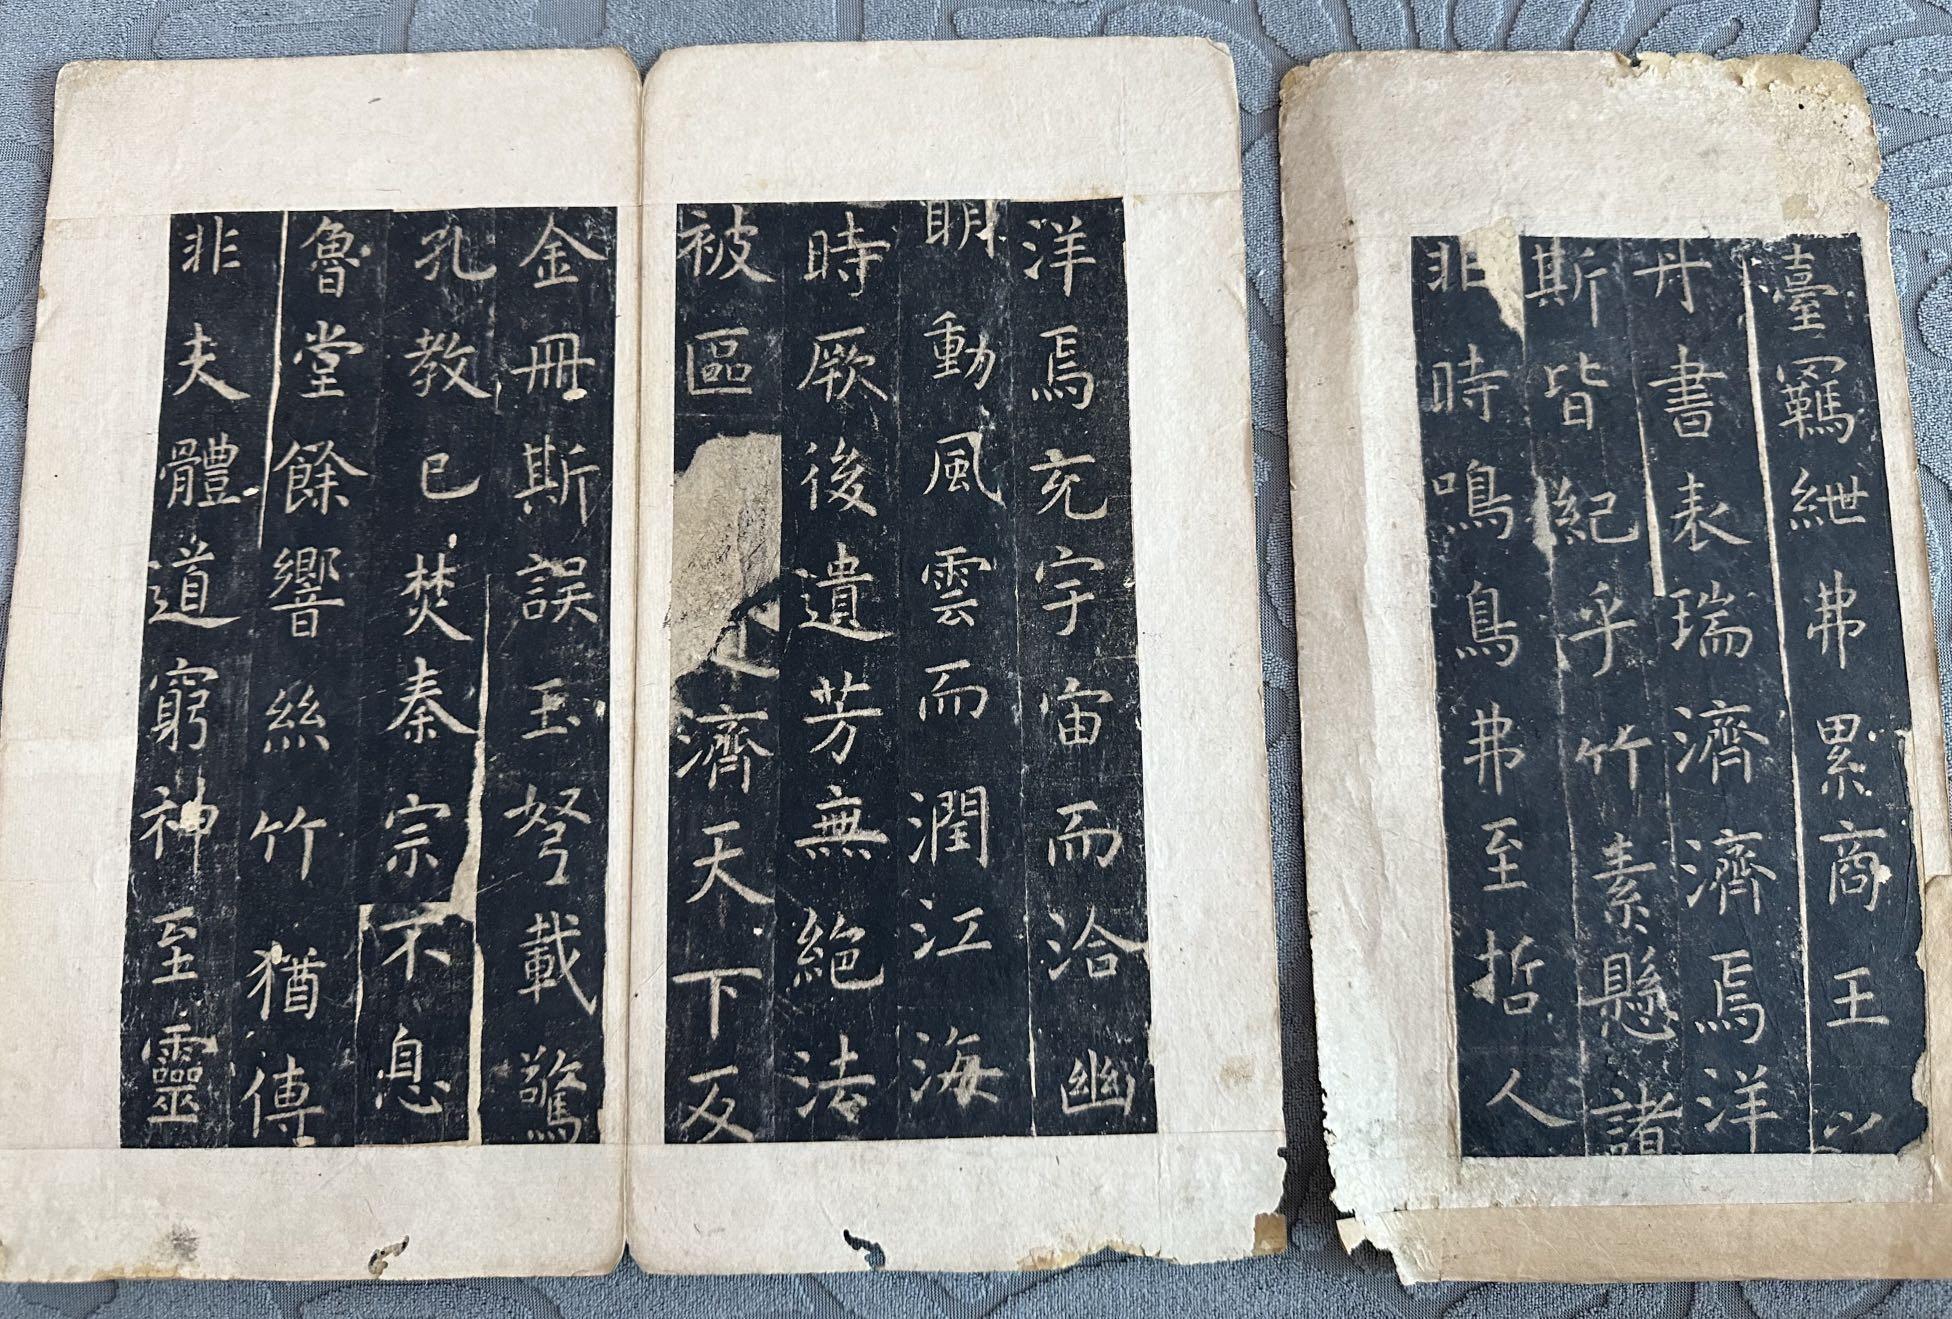 臺羈紲弗累商王
丹書表瑞濟濟焉洋
斯皆紀乎竹素懸諸
非時鳴鳥弗至哲人
洋焉充宇宙而洽幽
明動風雲而潤江海
時厥後遺芳無絕法
被區濟天下及
金冊斯誤玉弩載驚
孔教已焚秦宗不息
魯堂餘響絲竹猶傳
非夫體道窮神至靈